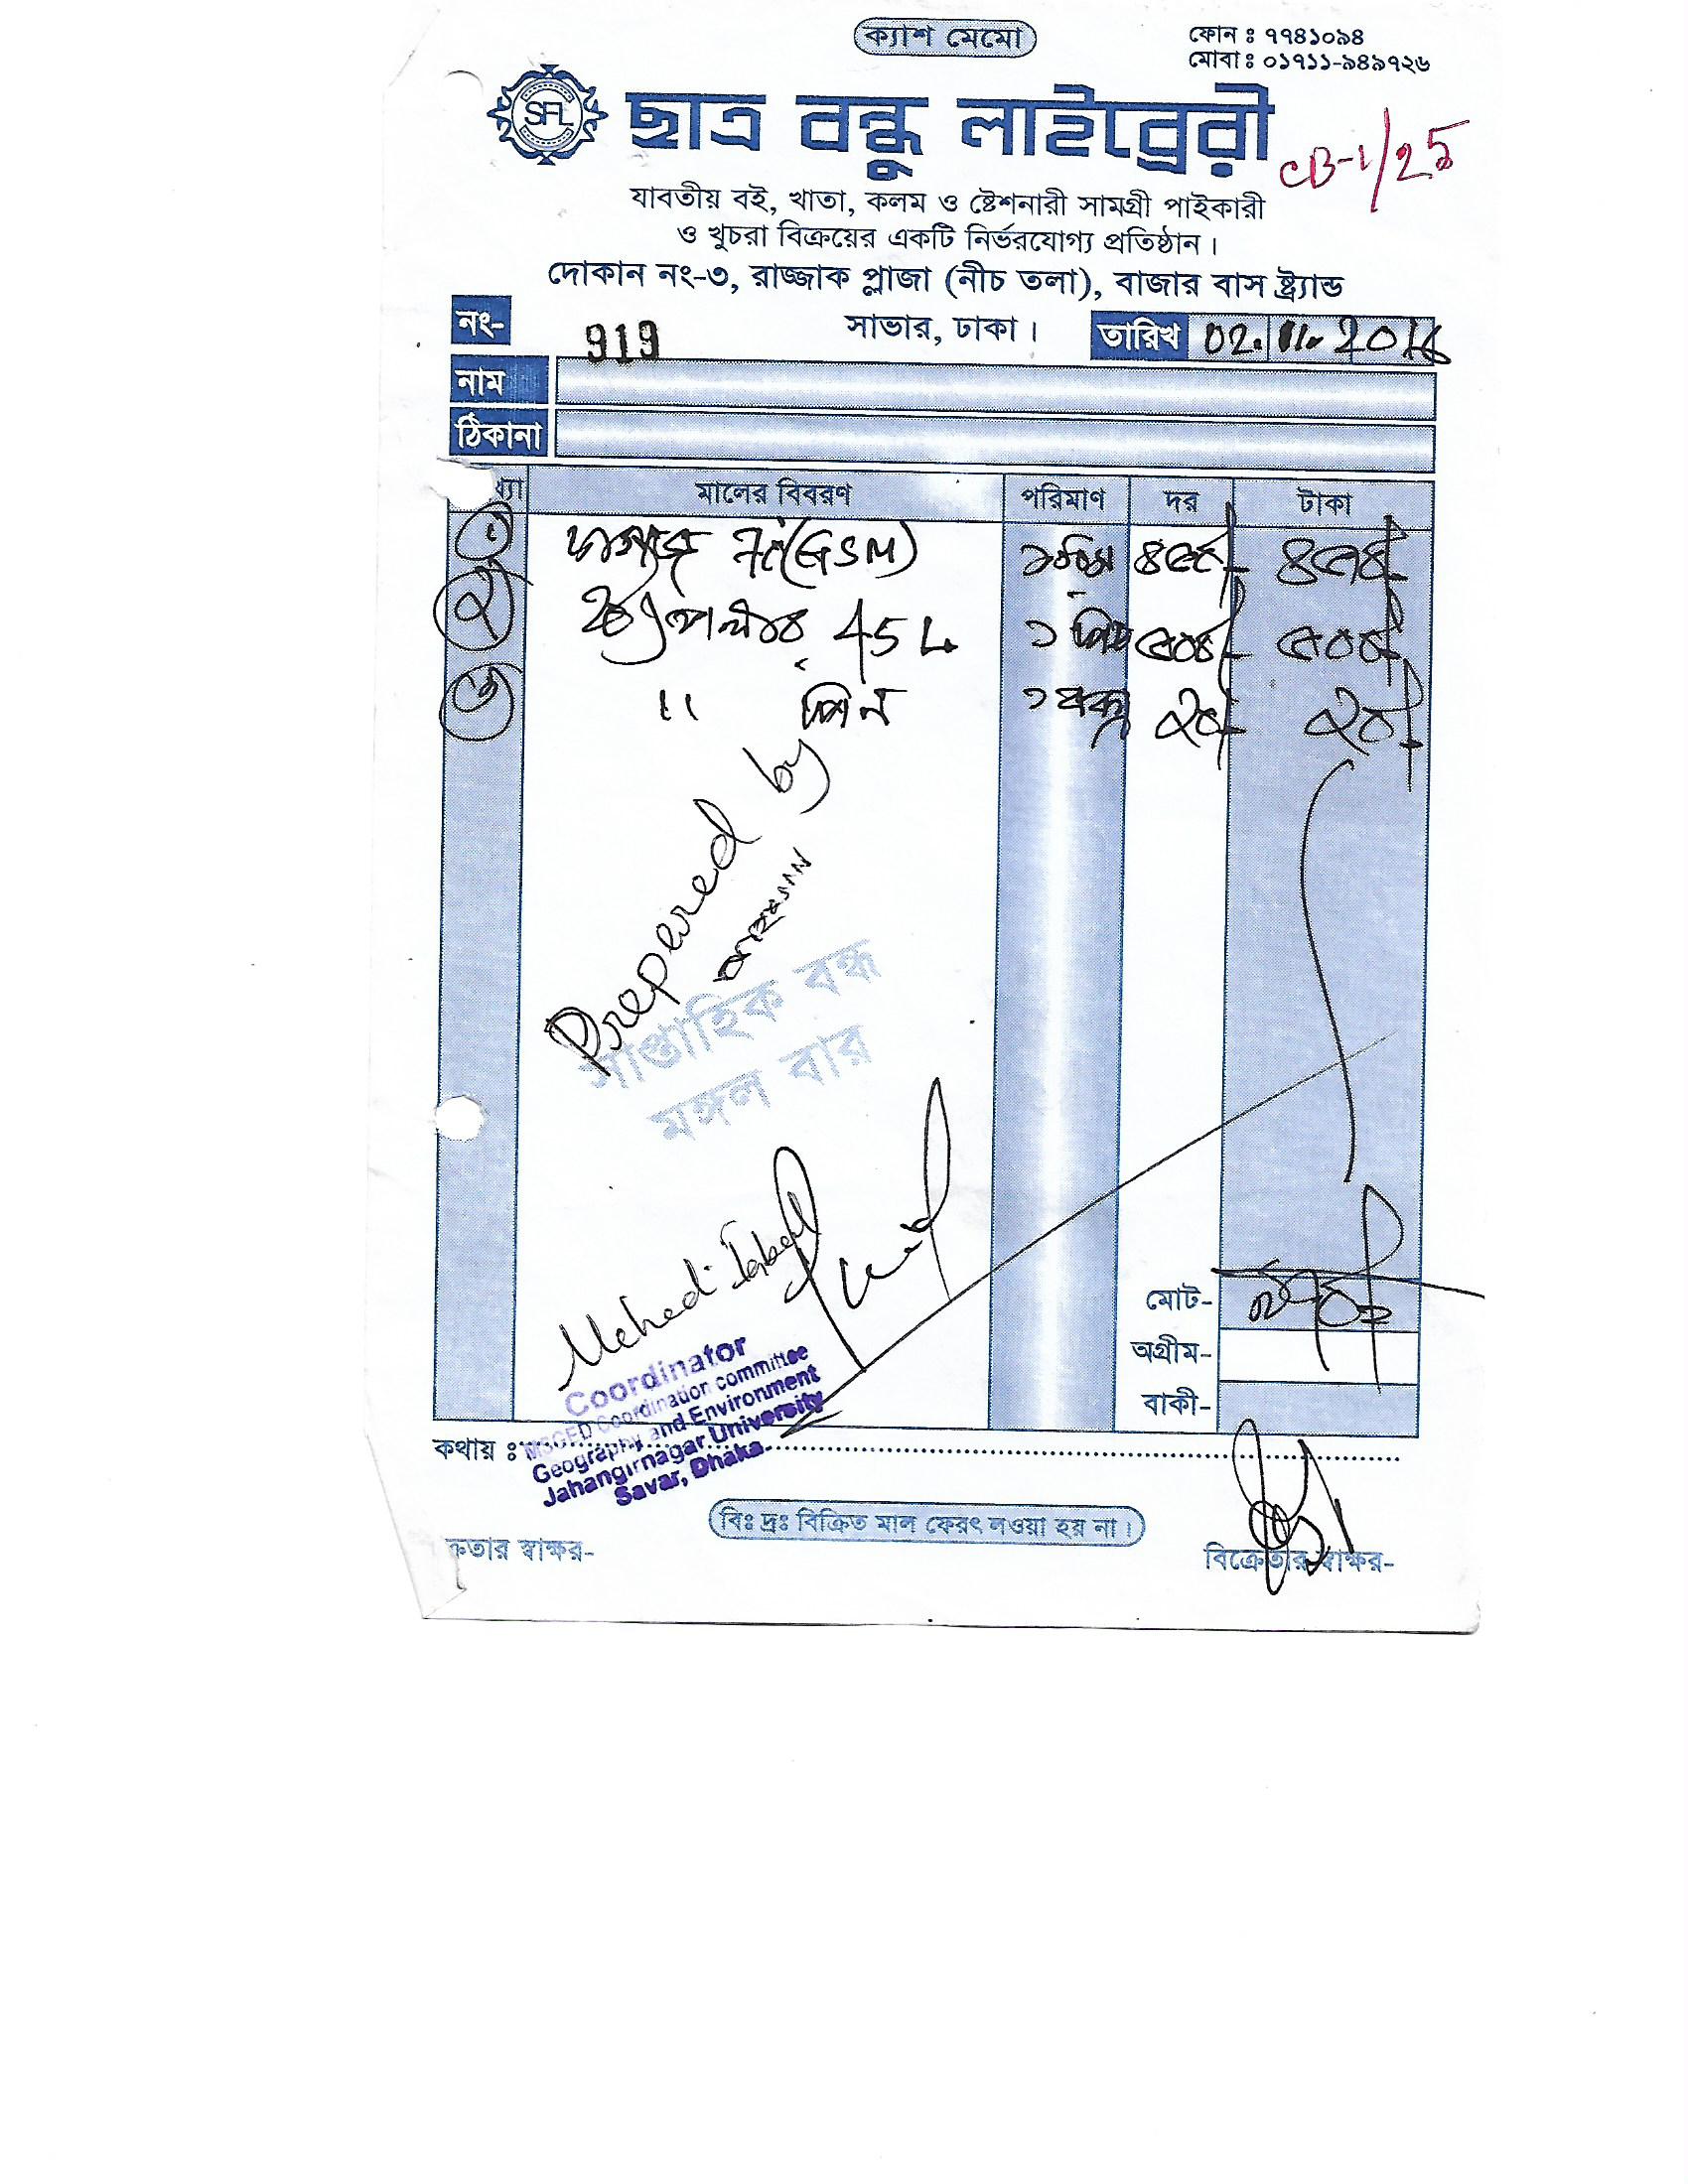 ক্যাশ মেমো
ফোন ঃ ৭৭৪১০৯৪
মোবা ঃ ০১৭১১-৯৪৯৭২৬
SFL
ছাত্র বন্ধু লাইব্রেরী
CB-1/25
যাবতীয় বই, খাতা, কলম ও ষ্টেশনারী সামগ্রী পাইকারী
ও খুচরা বিক্রয়ের একটি নির্ভরযোগ্য প্রতিষ্ঠান।
দোকান নং-৩, রাজ্জাক প্লাজা (নীচ তলা), বাজার বাস ষ্ট্র্যান্ড
সাভার, ঢাকা।
নং- 919
তারিখ 02. 11. 2016
নাম
ঠিকানা
মালের বিবরণ পরিমাণ দর টাকা
১ (GSM)
২ 45 L ১
৩ " পিন ১ ২০/- ২০/-
Prepered by
সাপ্তাহিক বন্ধ
মঙ্গল বার
Mehedi Iqbal
Coordinator
MSGED Coordination committee
Geography and Environment
Jahangirnagar University
Savar, Dhaka
মোট-
অগ্রীম-
বাকী-
কথায় ঃ
বিঃ দ্রঃ বিক্রিত মাল ফেরৎ লওয়া হয় না।
ক্রেতার স্বাক্ষর-
বিক্রেতার স্বাক্ষর-